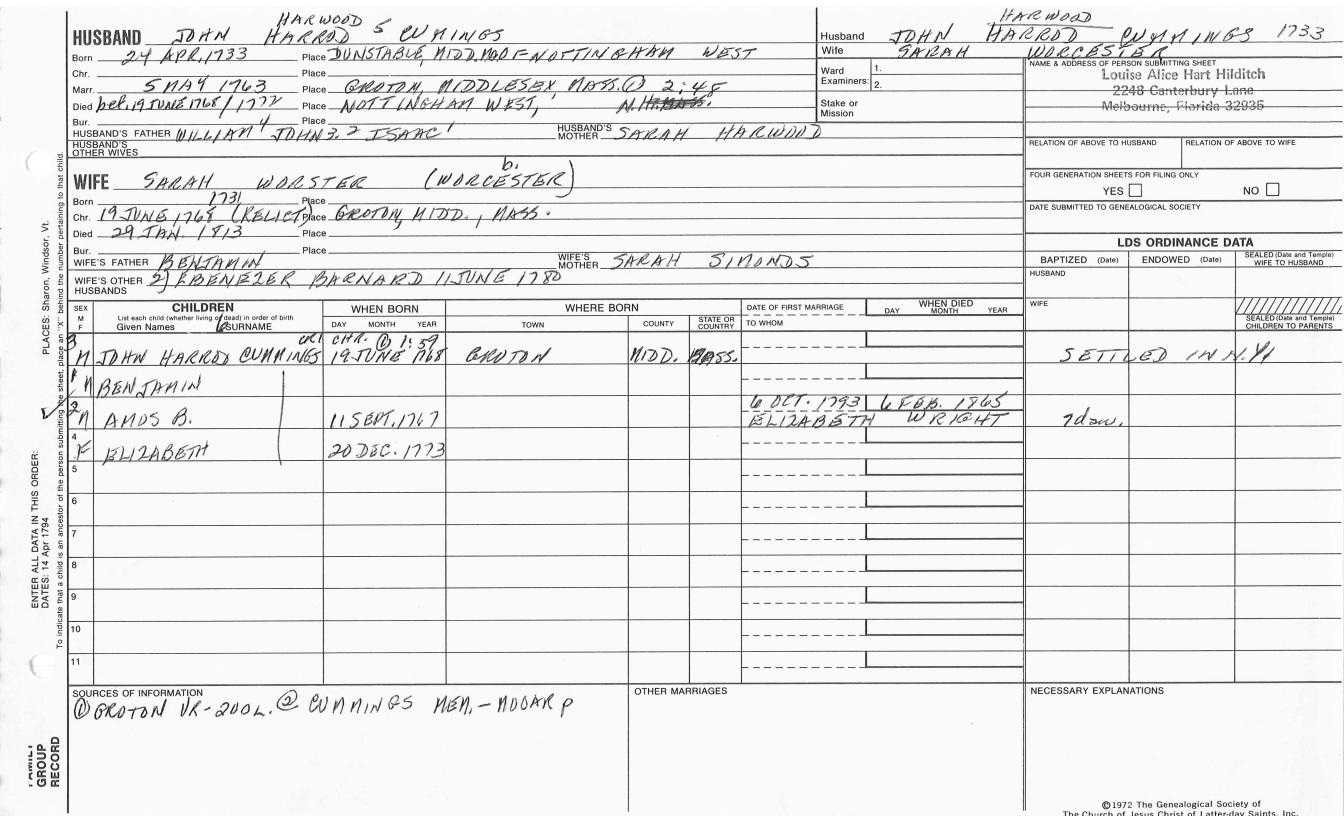 HARWOOD
HUSBAND JOHN HARROD 5 CUMMINGS
Born 24 APR, 1733 Place DUNSTABLE, MIDD, MOD=NOTTINGHAM WEST
Chr. Place
Marr. 5 MAY 1763 Place GROTON, MIDDLESEX, MASS. ① 2:48
Died bef, 19 JUNE 1768 / 1772 Place NOTTINGHAM WEST, N.H.
Bur. Place
HUSBAND'S FATHER WILLIAM 4 JOHN 3. 2 ISAAC 1 HUSBAND'S MOTHER SARAH HARWOOD
HUSBAND'S OTHER WIVES
b.
WIFE SARAH WORSTER (WORCESTER)
Born 1731 Place
Chr. 19 JUNE 1768 (RELICT) Place GROTON, MIDD., MASS.
Died 29 JAN. 1813 Place
Bur. Place
WIFE'S FATHER BENJAMIN WIFE'S MOTHER SARAH SIMONDS
WIFE'S OTHER HUSBANDS 2) EBENEZER BARNARD 11 JUNE 1780
HARWOOD
Husband JOHN HARROD CUMMINGS 1733
Wife SARAH WORCESTER
Ward Examiners: 1.
2.
Stake or Mission
NAME & ADDRESS OF PERSON SUBMITTING SHEET
Louise Alice Hart Hilditch
2248 Canterbury Lane
Melbourne, Florida 32935
RELATION OF ABOVE TO HUSBAND RELATION OF ABOVE TO WIFE
FOUR GENERATION SHEETS FOR FILING ONLY
YES NO
DATE SUBMITTED TO GENEALOGICAL SOCIETY
LDS ORDINANCE DATA
BAPTIZED (Date) ENDOWED (Date) SEALED (Date and Temple) WIFE TO HUSBAND
HUSBAND
WIFE
SEALED (Date and Temple) CHILDREN TO PARENTS
SEX M F
CHILDREN
List each child (whether living or dead) in order of birth
Given Names SURNAME
WHEN BORN
DAY MONTH YEAR
WHERE BORN
TOWN COUNTY STATE OR COUNTRY
DATE OF FIRST MARRIAGE
TO WHOM
WHEN DIED
DAY MONTH YEAR
CHR. ① 1:59
3 M JOHN HARROD CUMMINGS 19 JUNE 1768 GROTON MIDD. MASS. SETTLED IN N.Y.
1 M BENJAMIN
6 OCT. 1793 6 FEB. 1865
2 M AMOS B. 11 SEPT. 1767 ELIZABETH WRIGHT 7 dau.
4 F ELIZABETH 20 DEC. 1773
5
6
7
8
9
10
11
SOURCES OF INFORMATION
① GROTON VR-200L. ② CUMMINGS MEM. - MOOAR p
OTHER MARRIAGES
NECESSARY EXPLANATIONS
©1972 The Genealogical Society of
The Church of Jesus Christ of Latter-day Saints, Inc.
PLACES: Sharon, Windsor, Vt.
ENTER ALL DATA IN THIS ORDER:
DATES: 14 Apr 1794
To indicate that a child is an ancestor of the person submitting the sheet, place an "X" behind the number pertaining to that child.
FAMILY
GROUP
RECORD